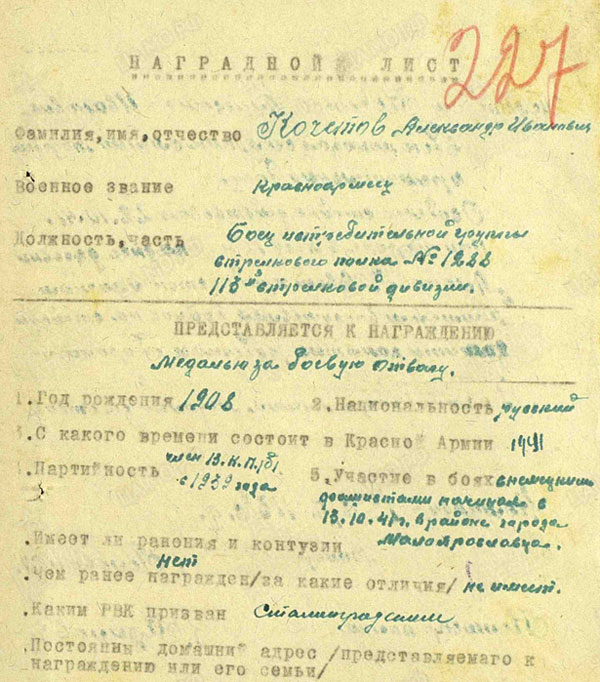 227
НАГРАДНОЙ ЛИСТ
Фамилия,имя,отчество Кочетов Александр Иванович
Военное звание Красноармеец
Должность,часть Боец истребительной группы
стрелкового полка № 1288
113й стрелковой дивизии.
ПРЕДСТАВЛЯЕТСЯ К НАГРАЖДЕНИЮ
Медалью за боевую отвагу.
1.Год рождения 1908 2.Национальность русский
3.С какого времени состоит в Красной Армии 1941
4.Партийность член В.К.П./б/
с 1939 года
5.Участие в боях с немецкими
фашистами начиная с
13.10.41г. в районе города
Малоярославца.
.Имеет ли ранения и контузии
нет
.Чем ранее награжден/за какие отличия/ не имеет.
.Каким РВК призван Сталинградским
.Постоянный домашний адрес /представляемого к
награждению или его семьи/